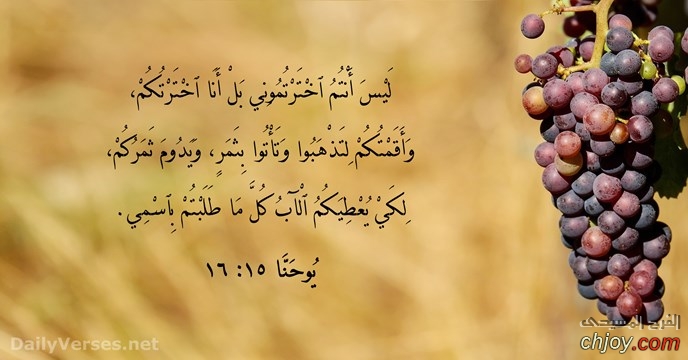 لَيْسَ أَنْتُمُ ٱخْتَرْتُمُونِي بَلْ أَنَا ٱخْتَرْتُكُمْ،
وَأَقَمْتُكُمْ لِتَذْهَبُوا وَتَأْتُوا بِثَمَرٍ، وَيَدُومَ ثَمَرُكُمْ،
لِكَيْ يُعْطِيَكُمُ ٱلْآبُ كُلَّ مَا طَلَبْتُمْ بِٱسْمِي.
يُوحَنَّا ١٥: ١٦
DailyVerses.net
الفرح المسيحى
chjoy.com